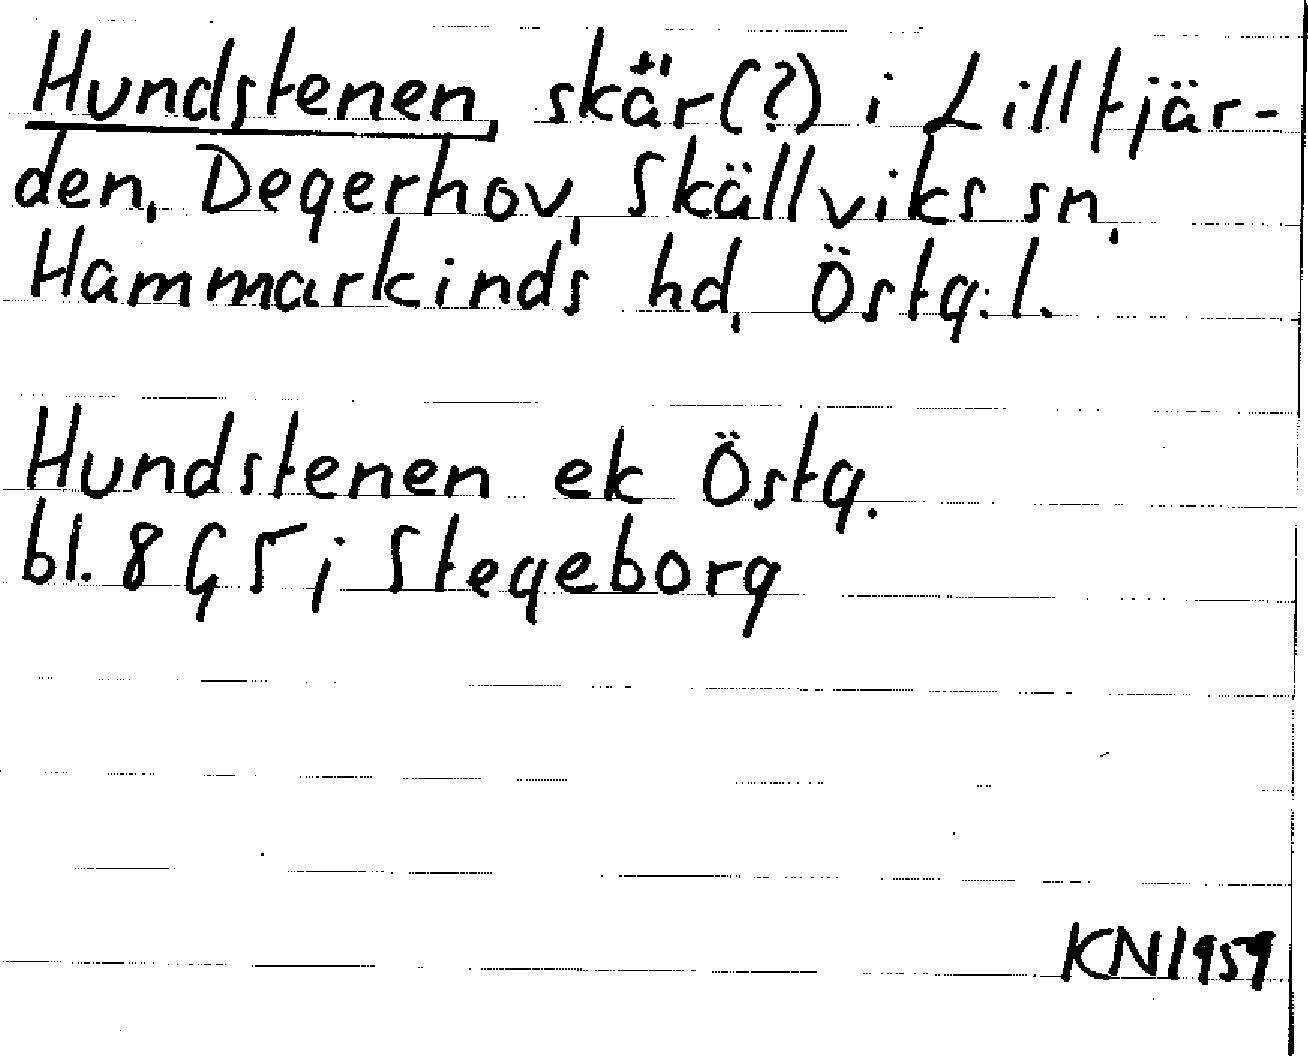 Hundstenen, skär(?) i Lillfjär-
den, Degerhov, Skällviks sn,
Hammarkinds hd, Östg.l.
Hundstenen ek Östg.
bl. 8 G 5 j Stegeborg
KN 1959